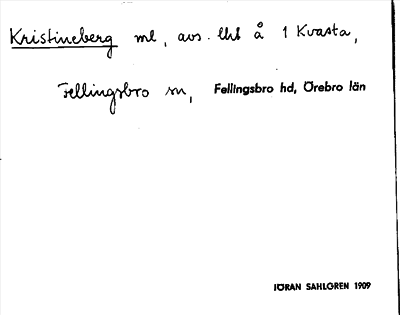 Kristineberg ml, avs. lht å 1 Kvasta,
Fellingsbro sn, Fellingsbro hd, Örebro län
JÖRAN SAHLGREN 1909